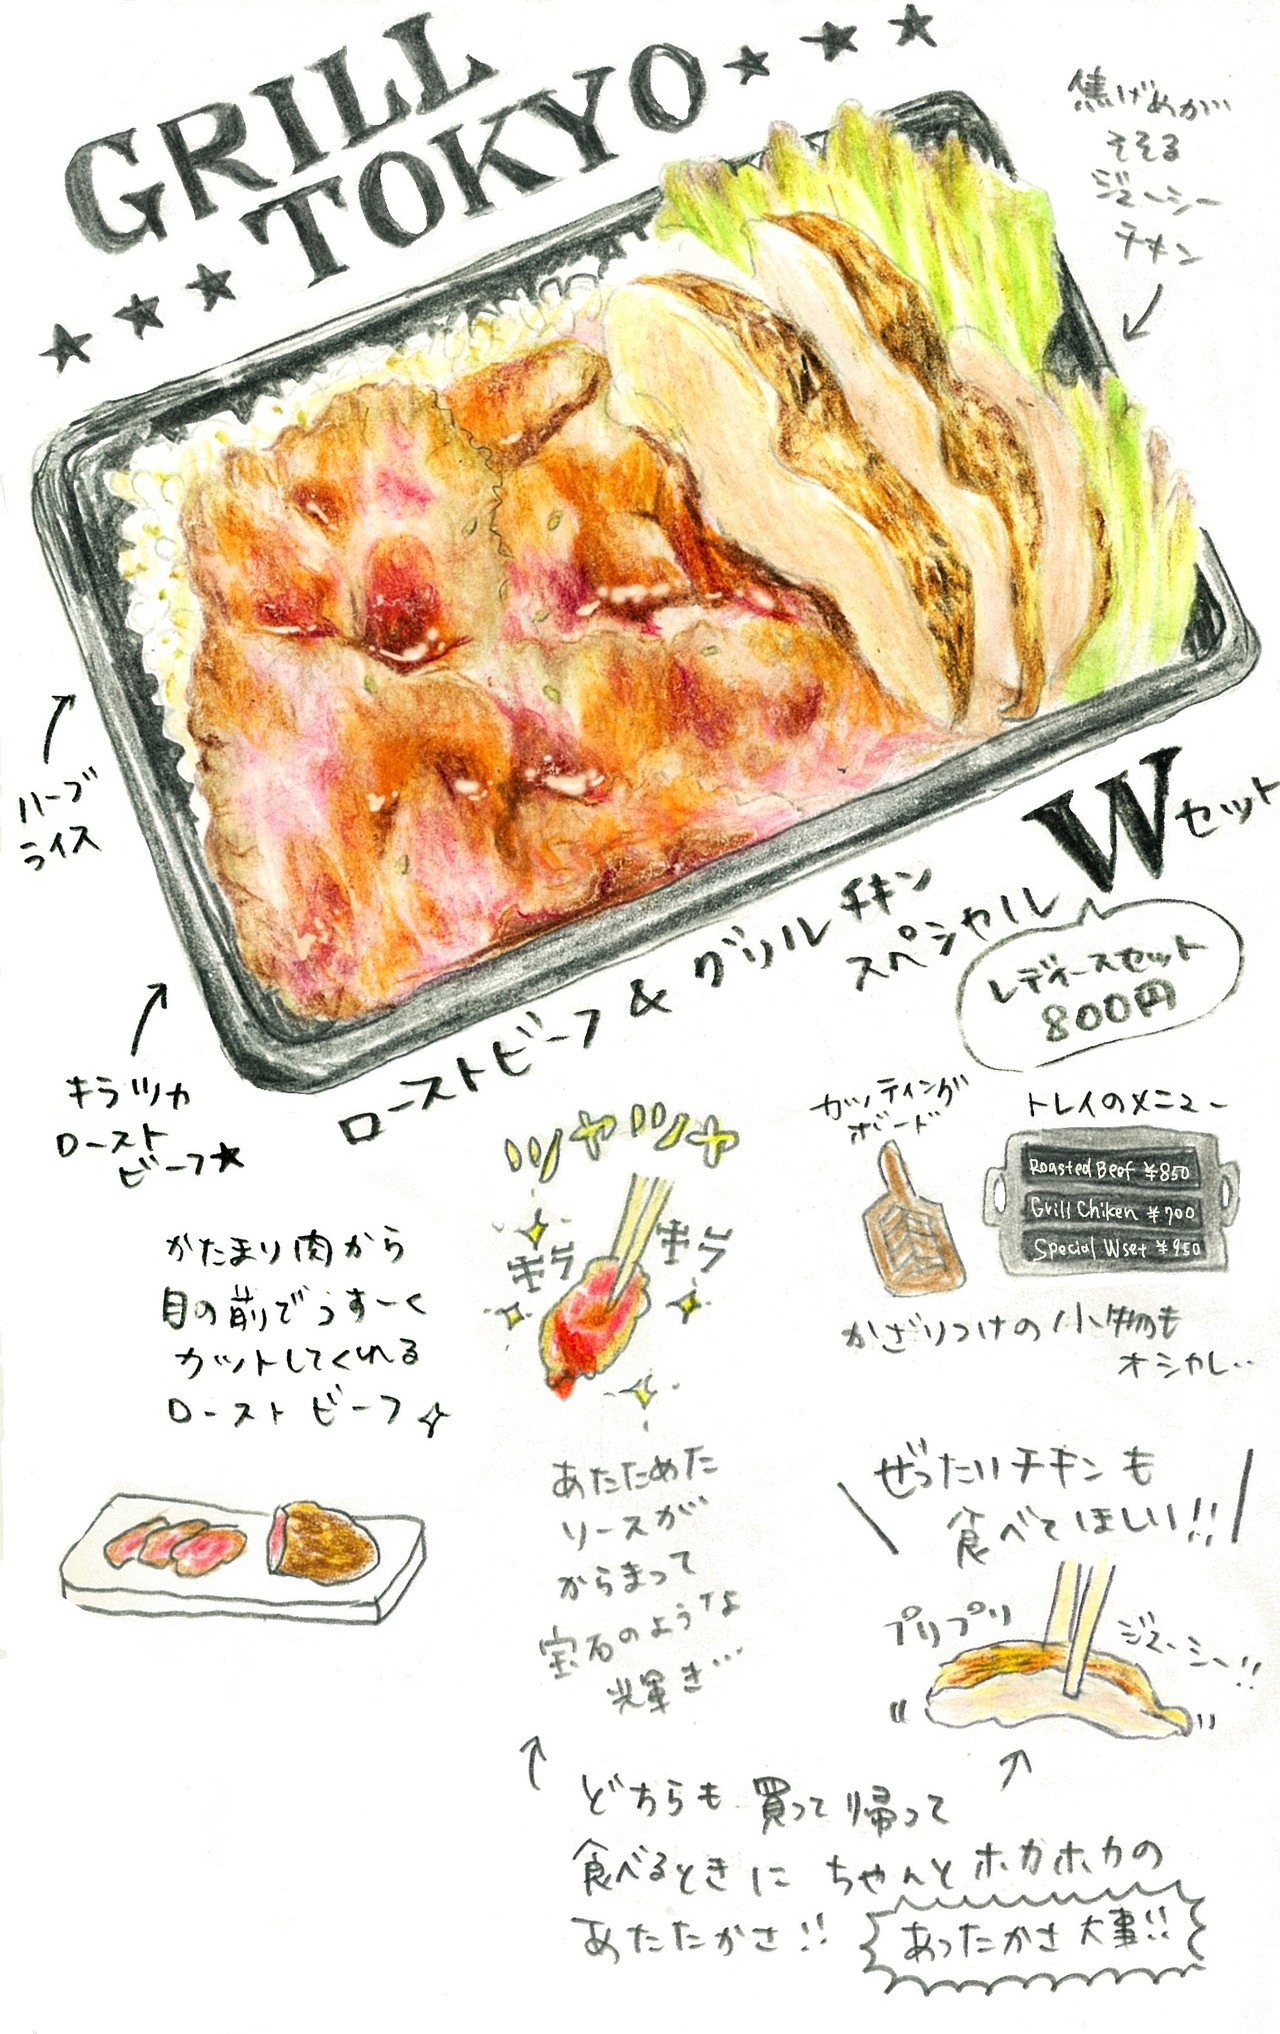 GRILL
TOKYO
焦げめが
そそる
ジューシー
チキン
ハーブ
ライス
キラツカ
ロースト
ビーフ
ローストビーフ & グリルチキン
スペシャル W セット
レディースセット
800円
ツヤツヤ
キラ
キラ
カッティング
ボード
トレイのメニュー
Roasted Beef ¥850
Grill Chiken ¥700
Special Wset ¥950
かざりつけの小物も
オシャレ‥
かたまり肉から
目の前でうすーく
カットしてくれる
ローストビーフ
あたためた
ソースが
からまって
宝石のような
光輝き…
ぜったいチキンも
食べてほしい!!
プリプリ
ジューシー!!
どちらも買って帰って
食べるときにちゃんとホカホカの
あたたかさ!!
あったかさ大事!!